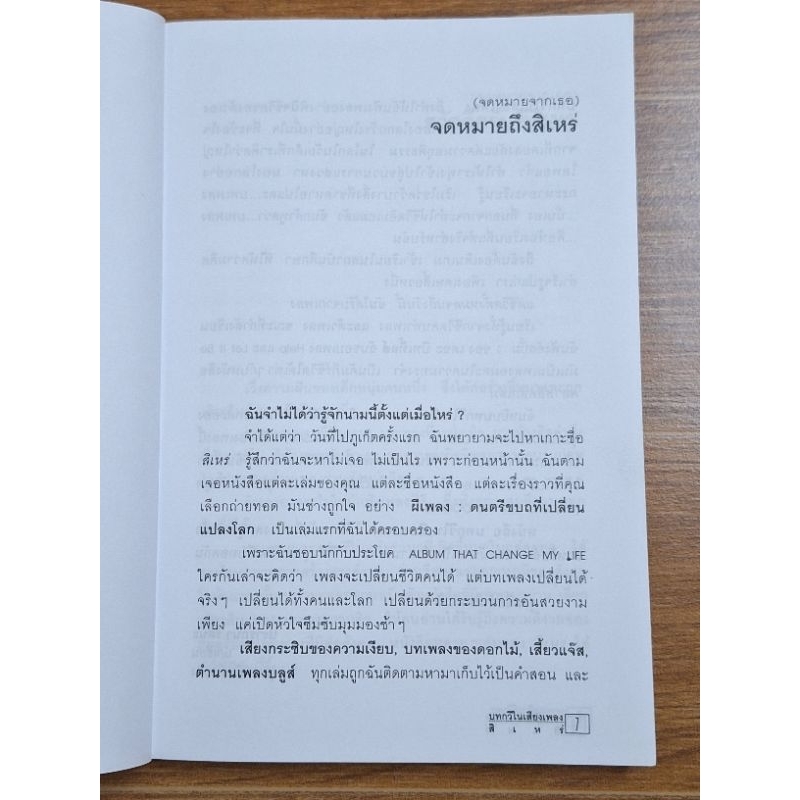 (จดหมายจากเธอ)
จดหมายถึงสิเหร่
ฉันจำไม่ได้ว่ารู้จักนามนี้ตั้งแต่เมื่อไหร่ ?
จำได้แต่ว่า วันที่ไปภูเก็ตครั้งแรก ฉันพยายามจะไปหาเกาะชื่อ
สิเหร่ รู้สึกว่าฉันจะหาไม่เจอ ไม่เป็นไร เพราะก่อนหน้านั้น ฉันตาม
เจอหนังสือแต่ละเล่มของคุณ แต่ละชื่อหนังสือ แต่ละเรื่องราวที่คุณ
เลือกถ่ายทอด มันช่างถูกใจ อย่าง ผีเพลง : ดนตรีขบถที่เปลี่ยน
แปลงโลก เป็นเล่มแรกที่ฉันได้ครอบครอง
เพราะฉันชอบนักกับประโยค ALBUM THAT CHANGE MY LIFE
ใครกันเล่าจะคิดว่า เพลงจะเปลี่ยนชีวิตคนได้ แต่บทเพลงเปลี่ยนได้
จริงๆ เปลี่ยนได้ทั้งคนและโลก เปลี่ยนด้วยกระบวนการอันสวยงาม
เพียง แค่เปิดหัวใจซึมซับมุมมองช้าๆ
เสียงกระซิบของความเงียบ, บทเพลงของดอกไม้, เสี้ยวแจ๊ส,
ตำนานเพลงบลูส์ ทุกเล่มถูกฉันติดตามหามาเก็บไว้เป็นคำสอน และ
บทกวีในเสียงเพลง 7
สิเหร่